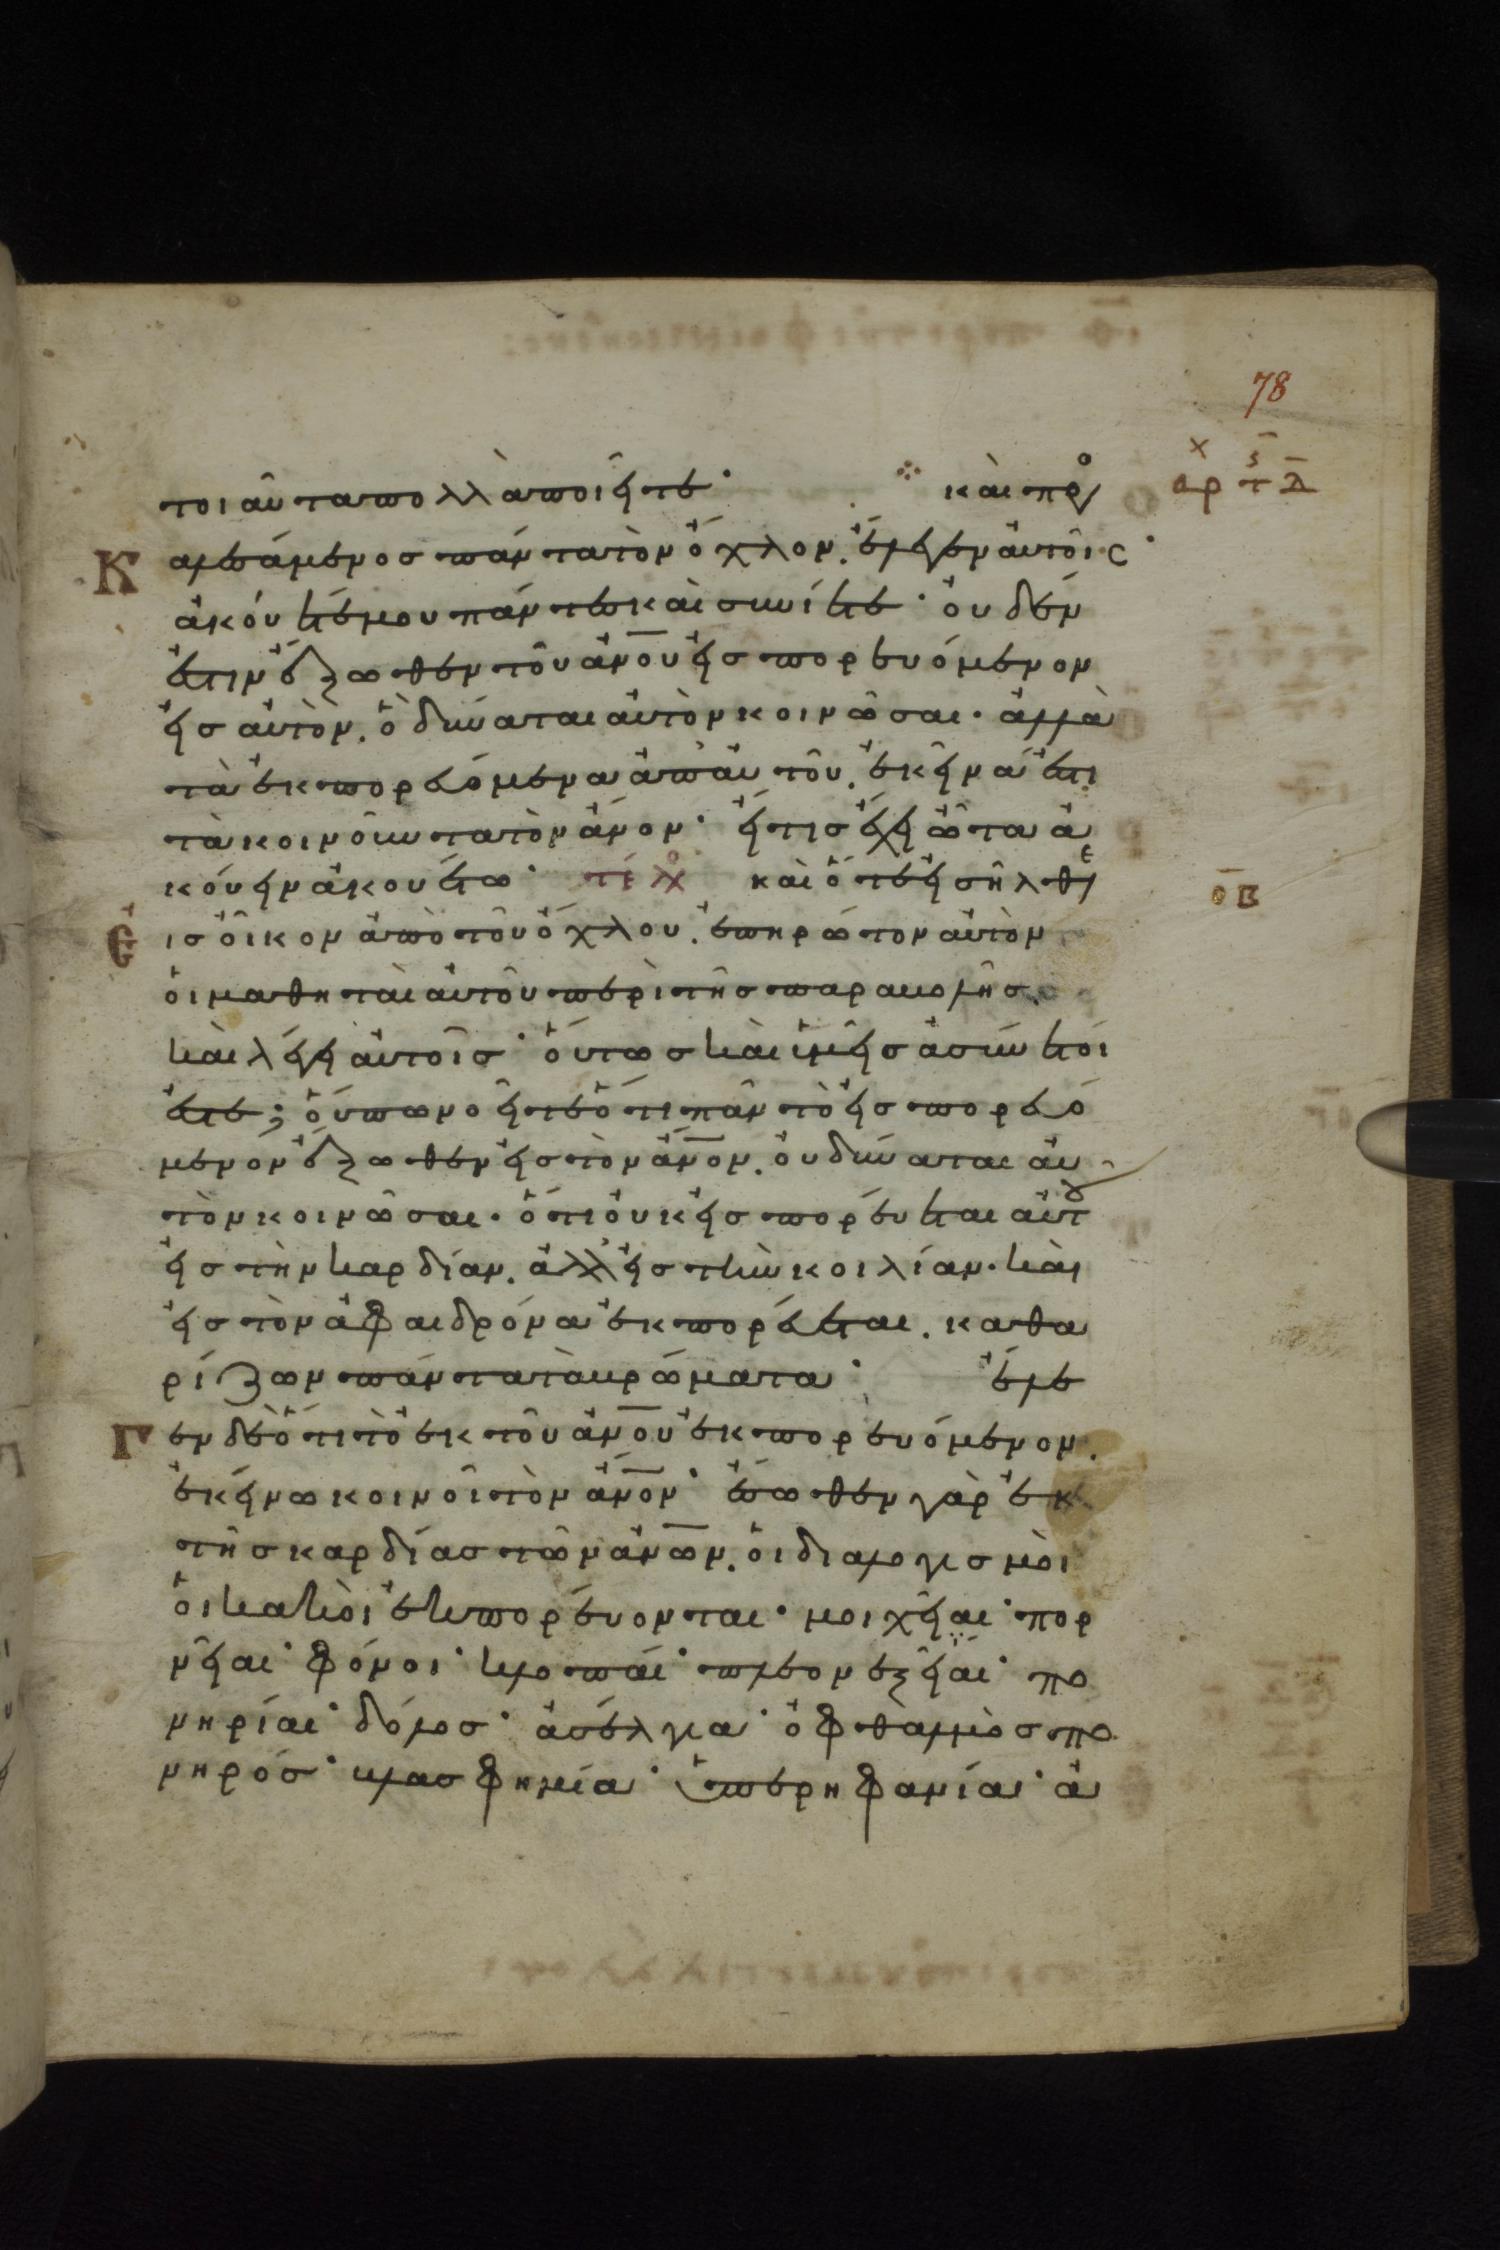 78
τοιαῦτα πολλὰ ποιεῖτε· καὶ προ
ἀρ
Κ αλεσάμενος πάντα τὸν ὄχλον. ἔλεγεν αὐτοῖς·
ἀκούετέ μου πάντες καὶ συνίετε· οὐδέν
ἐστιν ἔξωθεν τοῦ ἀνου εἰσπορευόμενον
εἰς αὐτὸν. ὃ δύναται αὐτὸν κοινῶσαι. ἀλλὰ
τὰ ἐκπορευόμενα ἀπ' αὐτοῦ. ἐκεῖνά ἐστι
τὰ κοινοῦντα τὸν ἄνον· εἴ τις ἔχει ὦτα ἀ
κούειν ἀκουέτω· τέλο καὶ ὅτε εἰσῆλθε
οβ
Ε ἰς οἶκον ἀπὸ τοῦ ὄχλου. ἐπηρώτον αὐτὸν
οἱ μαθηταὶ αὐτοῦ περὶ τῆς παραβολῆς.
καὶ λέγει αὐτοῖς· οὕτως καὶ ὑμεῖς ἀσύνετοί
ἐστε; οὔπω νοεῖτε ὅτι πᾶν τὸ εἰσπορευό
μενον ἔξωθεν εἰς τὸν ἄνον. οὐ δύναται αὐ
τὸν κοινῶσαι. ὅτι οὐκ εἰσπορεύεται αὐτου
εἰς τὴν καρδίαν. ἀλλ' εἰς τὴν κοιλίαν. καὶ
εἰς τὸν ἀφαιδρόνα ἐκπορεύεται. καθα
ρίζων πάντα τὰ βρώματα· ἔλε
Γ εν δὲ ὅτι τὸ ἐκ τοῦ ἀνου ἐκπορευόμενον.
ἐκείνω κοινοῖ τὸν ἄνον· ἔσωθεν γὰρ ἐκ
τῆς καρδίας τῶν ἀνων. οἱ διαλογισμοὶ
οἱ κακοὶ ἐκπορεύονται. μοιχεῖαι· πορ
νεῖαι· φόνοι· κλοπαί· πλεονεξεῖαι· πο
νηρίαι· δόλος· ἀσέλγια· ὀφθαλμὸς πο
νηρός· βλασφημία· ὑπερηφανία· ἀ